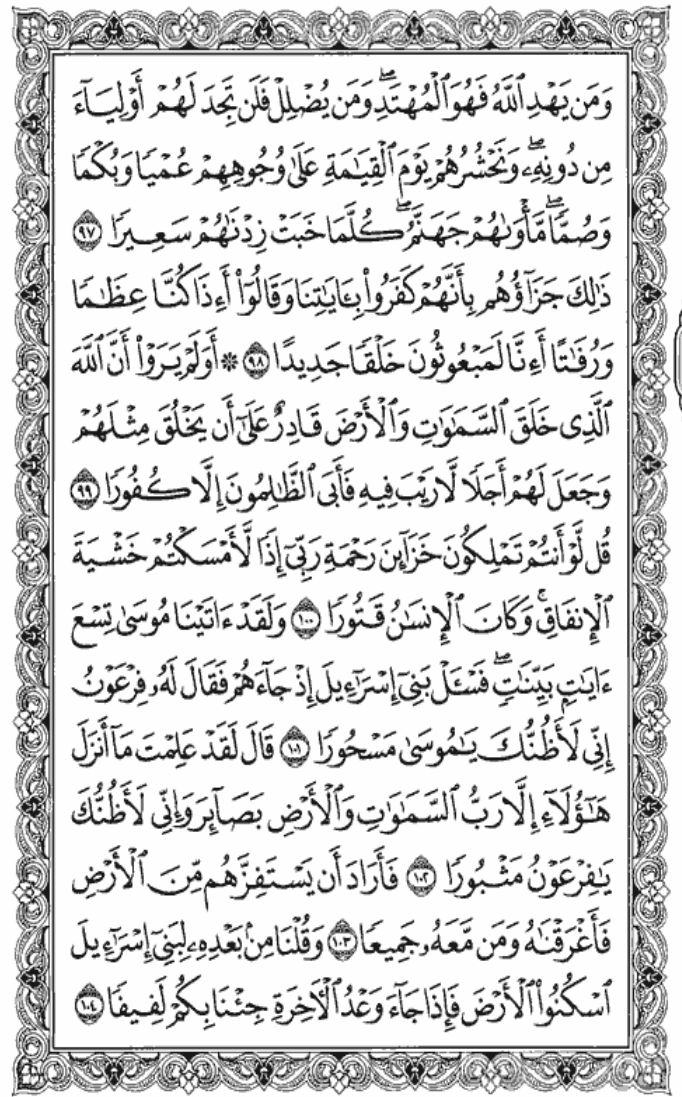 وَمَن يَهْدِ ٱللَّهُ فَهُوَ ٱلْمُهْتَدِۖ وَمَن يُضْلِلْ فَلَن تَجِدَ لَهُمْ أَوْلِيَآءَ
مِن دُونِهِۦۖ وَنَحْشُرُهُمْ يَوْمَ ٱلْقِيَـٰمَةِ عَلَىٰ وُجُوهِهِمْ عُمْيًا وَبُكْمًا
وَصُمًّاۖ مَّأْوَىٰهُمْ جَهَنَّمُۖ كُلَّمَا خَبَتْ زِدْنَـٰهُمْ سَعِيرًا ٩٧
ذَٰلِكَ جَزَآؤُهُم بِأَنَّهُمْ كَفَرُوا۟ بِـَٔايَـٰتِنَا وَقَالُوٓا۟ أَءِذَا كُنَّا عِظَـٰمًا
وَرُفَـٰتًا أَءِنَّا لَمَبْعُوثُونَ خَلْقًا جَدِيدًا ٩٨ * أَوَلَمْ يَرَوْا۟ أَنَّ ٱللَّهَ
ٱلَّذِى خَلَقَ ٱلسَّمَـٰوَٰتِ وَٱلْأَرْضَ قَادِرٌ عَلَىٰٓ أَن يَخْلُقَ مِثْلَهُمْ
وَجَعَلَ لَهُمْ أَجَلًا لَّا رَيْبَ فِيهِ فَأَبَى ٱلظَّـٰلِمُونَ إِلَّا كُفُورًا ٩٩
قُل لَّوْ أَنتُمْ تَمْلِكُونَ خَزَآئِنَ رَحْمَةِ رَبِّىٓ إِذًا لَّأَمْسَكْتُمْ خَشْيَةَ
ٱلْإِنفَاقِۚ وَكَانَ ٱلْإِنسَـٰنُ قَتُورًا ١٠٠ وَلَقَدْ ءَاتَيْنَا مُوسَىٰ تِسْعَ
ءَايَـٰتٍۭ بَيِّنَـٰتٍۖ فَسْـَٔلْ بَنِىٓ إِسْرَٰٓءِيلَ إِذْ جَآءَهُمْ فَقَالَ لَهُۥ فِرْعَوْنُ
إِنِّى لَأَظُنُّكَ يَـٰمُوسَىٰ مَسْحُورًا ١٠١ قَالَ لَقَدْ عَلِمْتَ مَآ أَنزَلَ
هَـٰٓؤُلَآءِ إِلَّا رَبُّ ٱلسَّمَـٰوَٰتِ وَٱلْأَرْضِ بَصَآئِرَ وَإِنِّى لَأَظُنُّكَ
يَـٰفِرْعَوْنُ مَثْبُورًا ١٠٢ فَأَرَادَ أَن يَسْتَفِزَّهُم مِّنَ ٱلْأَرْضِ
فَأَغْرَقْنَـٰهُ وَمَن مَّعَهُۥ جَمِيعًا ١٠٣ وَقُلْنَا مِنۢ بَعْدِهِۦ لِبَنِىٓ إِسْرَٰٓءِيلَ
ٱسْكُنُوا۟ ٱلْأَرْضَ فَإِذَا جَآءَ وَعْدُ ٱلْـَٔاخِرَةِ جِئْنَا بِكُمْ لَفِيفًا ١٠٤